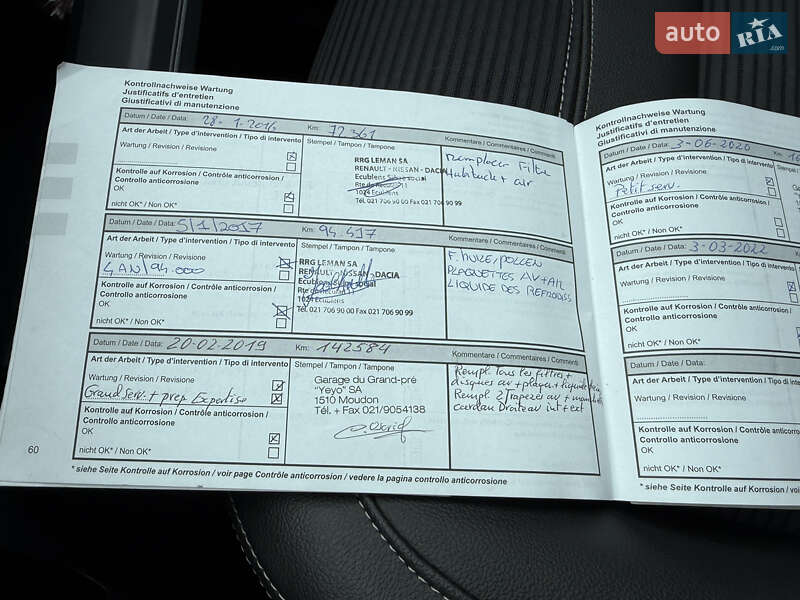 auto RIA .com
Kontrollnachweise Wartung
Justificatifs d'entretien
Giustificativi di manutenzione
Datum / Date / Data: 28-1-2016 Km: 72 361
Art der Arbeit / Type d'intervention / Tipo di intervento
Stempel / Tampon / Tampone
Kommentare / Commentaires / Commenti
Wartung / Revision / Revisione
Kontrolle auf Korrosion / Contrôle anticorrosion /
Controllo anticorrosione
OK
nicht OK* / Non OK*
RRG LEMAN SA
RENAULT - NISSAN - DACIA
Ecublens
1024 Ecublens
Tél. 021 706 90 00 Fax 021 706 90 99
Remplacer Filtre
Habitacle + air
Datum / Date / Data: 5/1/2017 Km: 94.417
Art der Arbeit / Type d'intervention / Tipo di intervento
Stempel / Tampon / Tampone
Kommentare / Commentaires / Commenti
Wartung / Revision / Revisione
4 AN/94.000
Kontrolle auf Korrosion / Contrôle anticorrosion /
Controllo anticorrosione
OK
nicht OK* / Non OK*
RRG LEMAN SA
RENAULT - NISSAN - DACIA
Ecublens
1024 Ecublens
Tél. 021 706 90 00 Fax 021 706 90 99
F. HUILE/POLLEN
PLAQUETTES AV+AR
LIQUIDE DES REFRODISS
Datum / Date / Data: 20-02-2019 Km: 142584
Art der Arbeit / Type d'intervention / Tipo di intervento
Stempel / Tampon / Tampone
Kommentare / Commentaires / Commenti
Wartung / Revision / Revisione
Grand serv. + prep Expertise
Kontrolle auf Korrosion / Contrôle anticorrosion /
Controllo anticorrosione
OK
nicht OK* / Non OK*
Garage du Grand-pré
"Yeyo" SA
1510 Moudon
Tél. + Fax 021/9054138
Rempl tous les filtres +
disques av + plaq. + liquide
Rempl 2 Trapezes av +
cardan Droite av int + ext
60
* siehe Seite Kontrolle auf Korrosion / voir page Contrôle anticorrosion / vedere la pagina controllo anticorrosione
Kontrollnachweise Wartung
Justificatifs d'entretien
Giustificativi di manutenzione
Datum / Date / Data: 3-06-2020
Art der Arbeit / Type d'intervention / Tipo di intervento
Wartung / Revision / Revisione
Petit serv.
Kontrolle auf Korrosion / Contrôle anticorrosion
Controllo anticorrosione
OK
nicht OK* / Non OK*
Datum / Date / Data: 3-03-2022
Art der Arbeit / Type d'intervention / Tipo di intervento
Wartung / Revision / Revisione
Kontrolle auf Korrosion / Contrôle anticorrosion
Controllo anticorrosione
OK
nicht OK* / Non OK*
Datum / Date / Data:
Art der Arbeit / Type d'intervention / Tipo di
Wartung / Revision / Revisione
Kontrolle auf Korrosion / Contrôle
Controllo anticorrosione
OK
nicht OK* / Non OK*
* siehe Seite Kontrolle auf Korrosion / voir